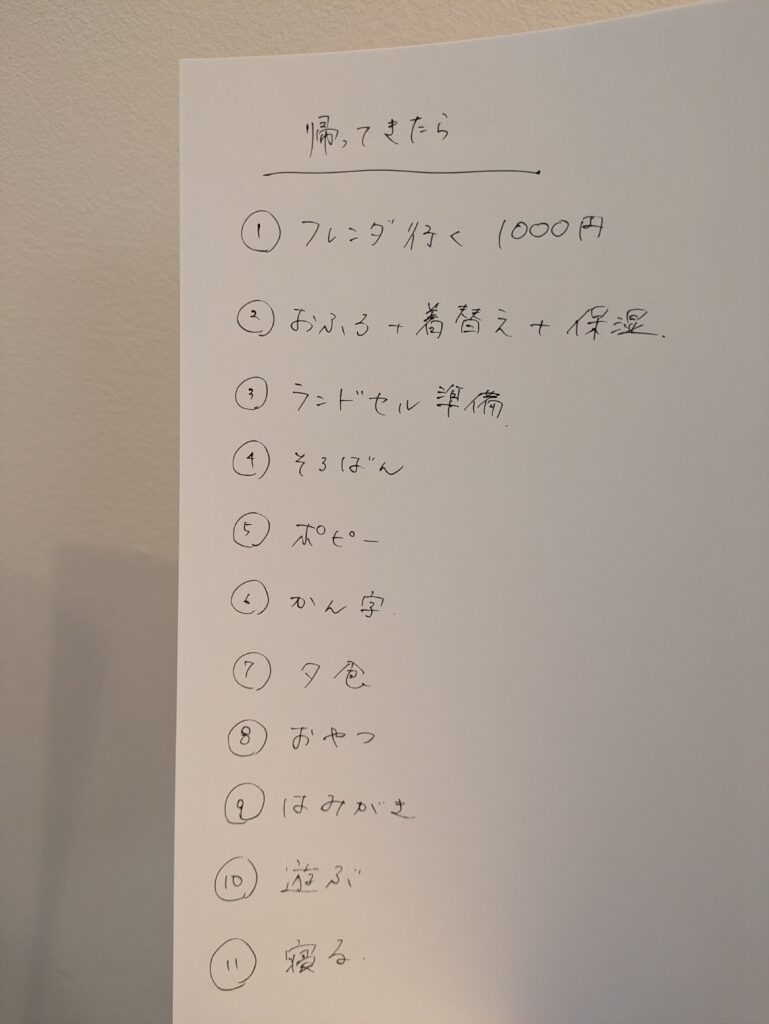 帰ってきたら
① フレンダ行く 1000円
② おふろ+着替え+保湿.
③ ランドセル準備.
④ そろばん
⑤ ポピー
⑥ かん字.
⑦ 夕食
⑧ おやつ
⑨ はみがき
⑩ 遊ぶ
⑪ 寝る.